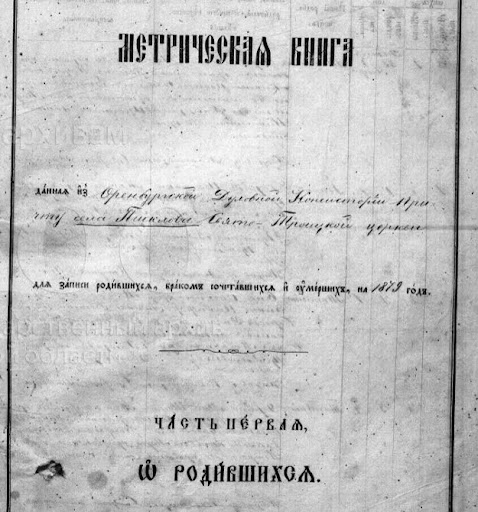 МЕТРИЧЕСКАЯ КНИГА
да́нная и҆з̾ Оренбургской Духовной Консисторіи при-
чту села Свято-Троицкой церкви
для за́писи роди́вшихся, бра́комъ сочета́вшихся и҆ ᲂу҆ме́ршихъ, на 1879 го́дъ.
ЧА́СТЬ ПЕ́РВАЯ,
Ѽ РОДИ́ВШИХСЯ.